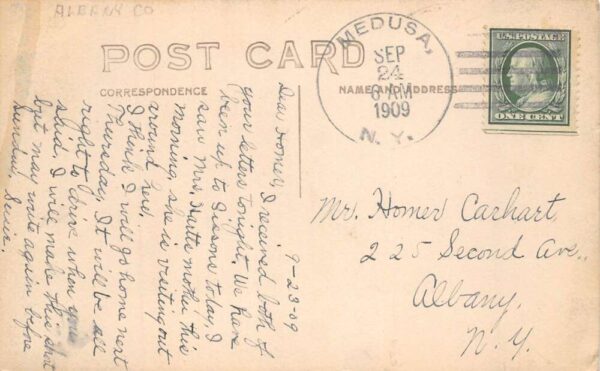 ALBANY CO
POST CARD
CORRESPONDENCE
NAME AND ADDRESS
MEDUSA,
SEP
24
6 AM
1909
N. Y.
U.S. POSTAGE
ONE CENT
9-23-09
Dear Homer, I received both of
your letters tonight, We have
been up to Sissons today, I
saw Mrs. Harts mother this
morning, she is visiting out
around here,
I think I will go home next
Thursday, It will be all
right to drive when you
said, I will make this short
but may write again before
Sunday,
Mr. Homer Carhart,
225 Second Ave.,
Albany,
N. Y.